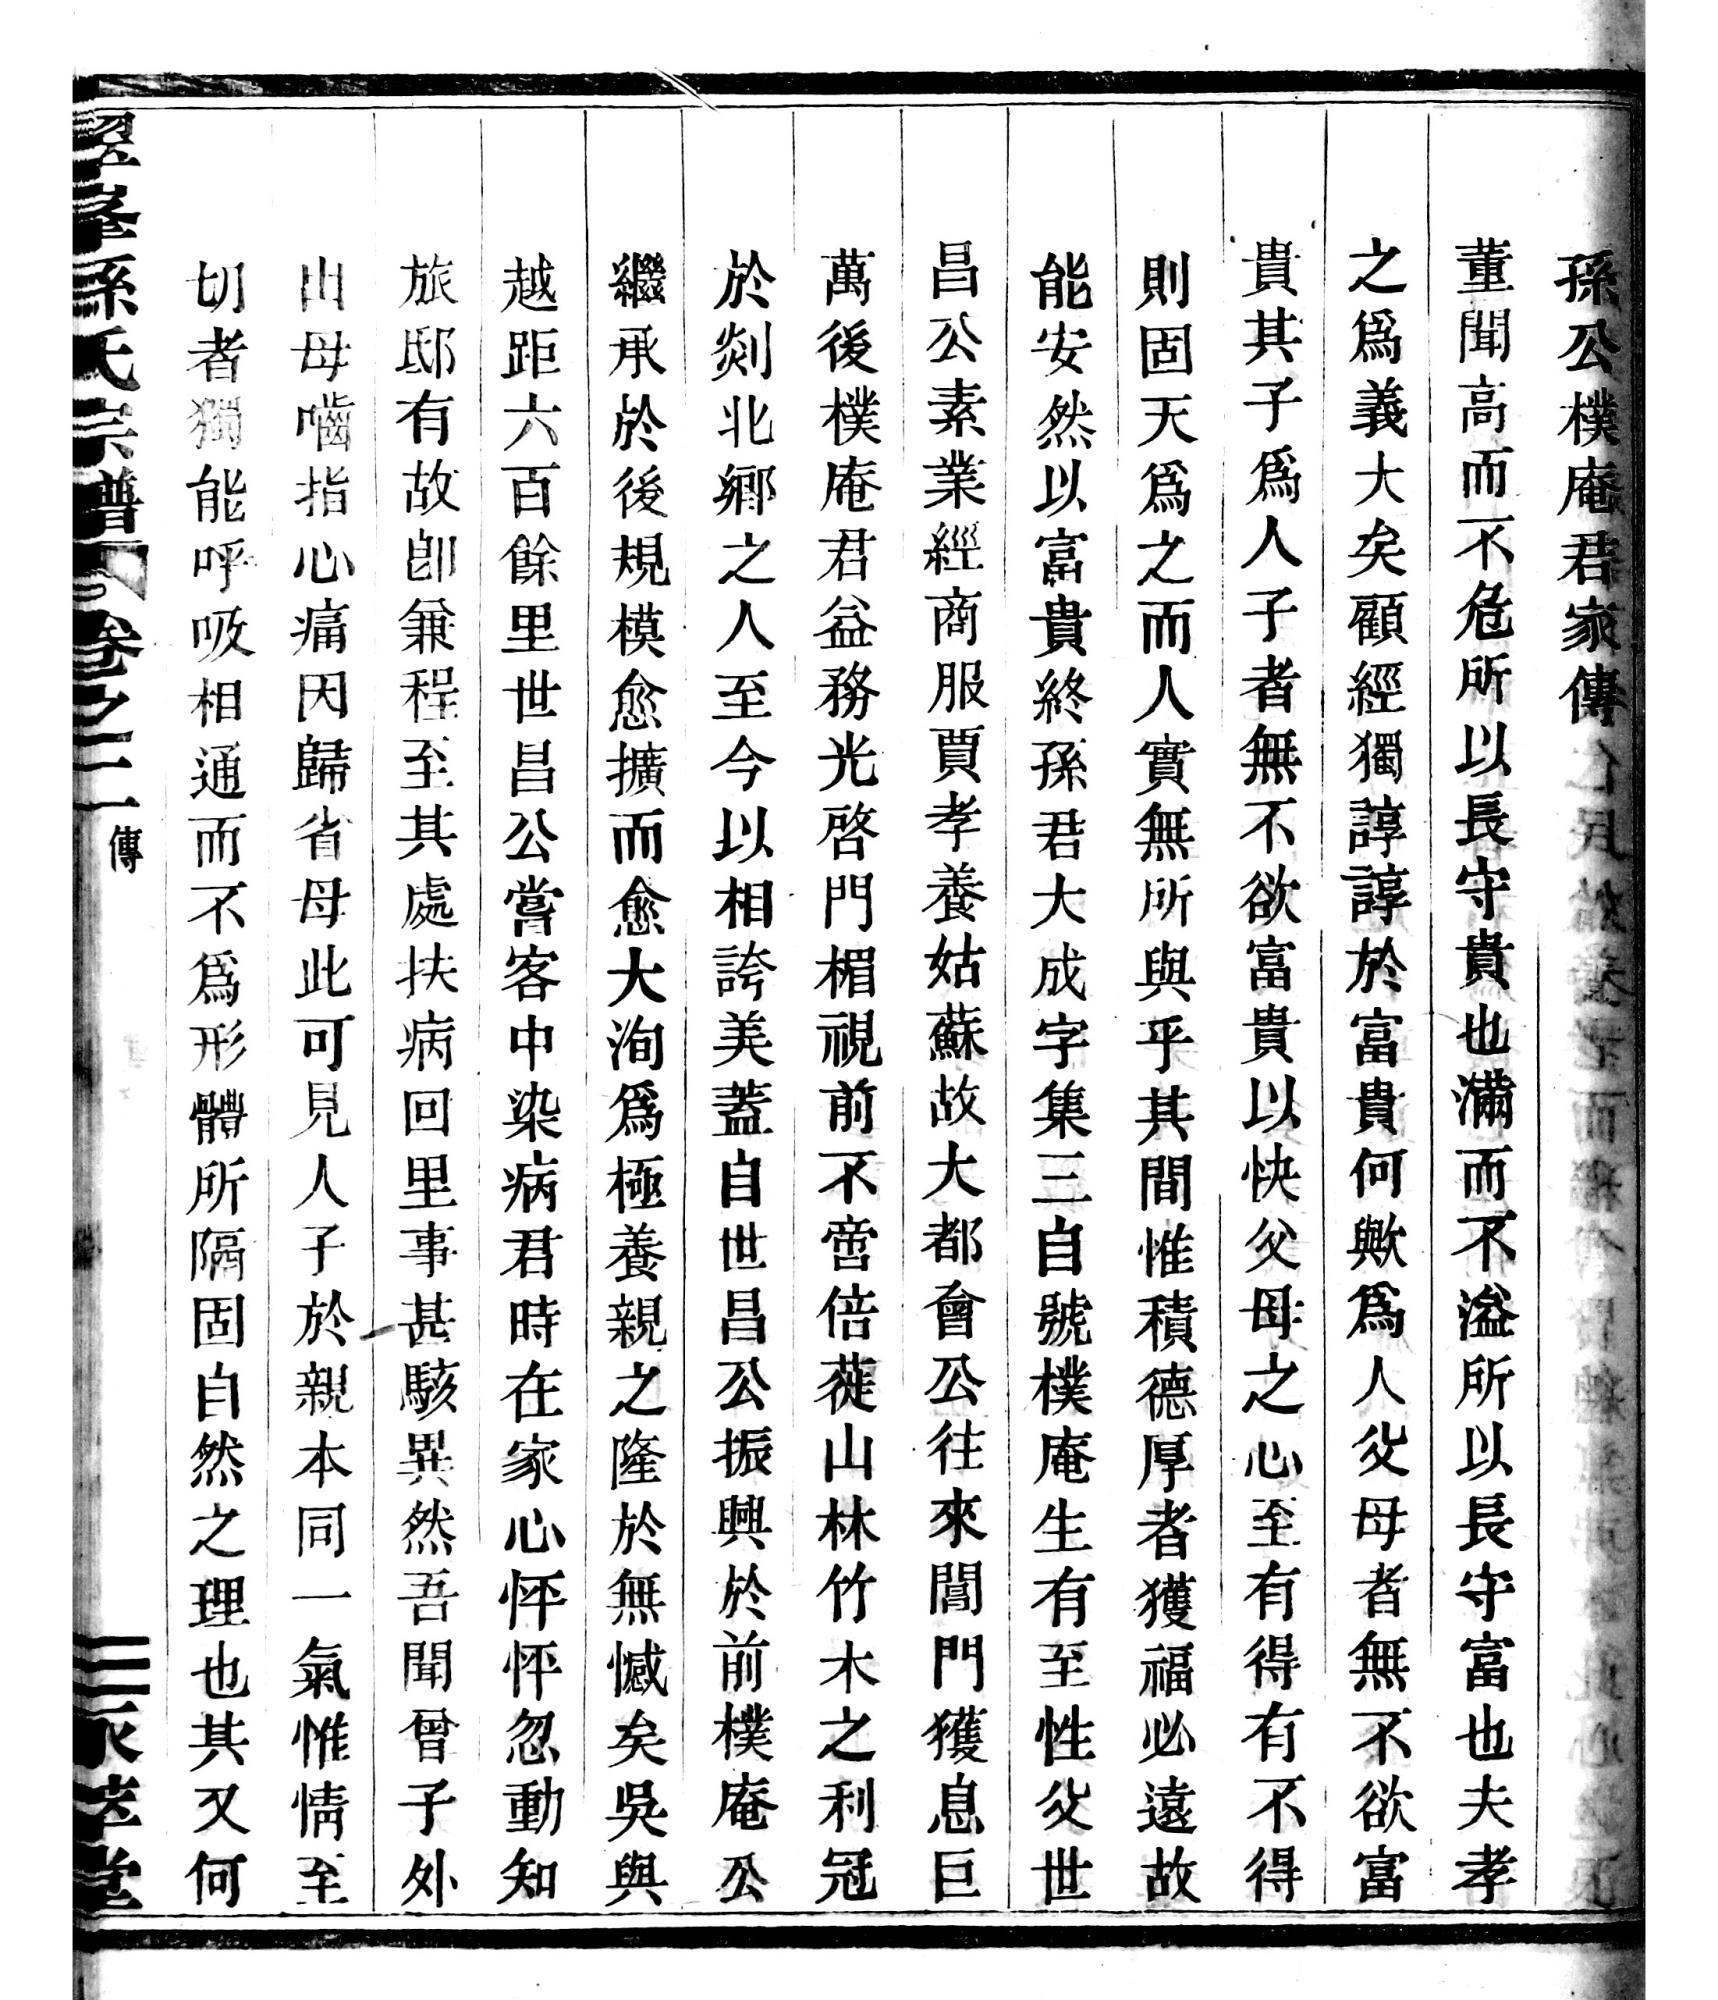 孫公樸庵君家傳
董聞高而不危所以長守貴也滿而不溢所以長守富也夫孝
之爲義大矣顧經獨諄諄於富貴何歟爲人父母者無不欲富
貴其子爲人子者無不欲富貴以快父母之心至有得有不得
則固天爲之而人實無所與乎其間惟積德厚者獲福必遠故
能安然以富貴終孫君大成字集三自號樸庵生有至性父世
昌公素業經商服賈孝養姑蘇故大都會公往來閶門獲息巨
萬後樸庵君益務光啓門楣視前不啻倍蓰山林竹木之利冠
於剡北鄉之人至今以相誇美蓋自世昌公振興於前樸庵公
繼承於後規模愈擴而愈大洵爲極養親之隆於無憾矣吳與
越距六百餘里世昌公嘗客中染病君時在家心怦怦忽動知
旅邸有故卽兼程至其處扶病回里事甚駭異然吾聞曾子外
出母嚙指心痛因歸省母此可見人子於親本同一氣惟情至
切者獨能呼吸相通而不爲形體所隔固自然之理也其又何
孫氏宗譜 卷之二 傳